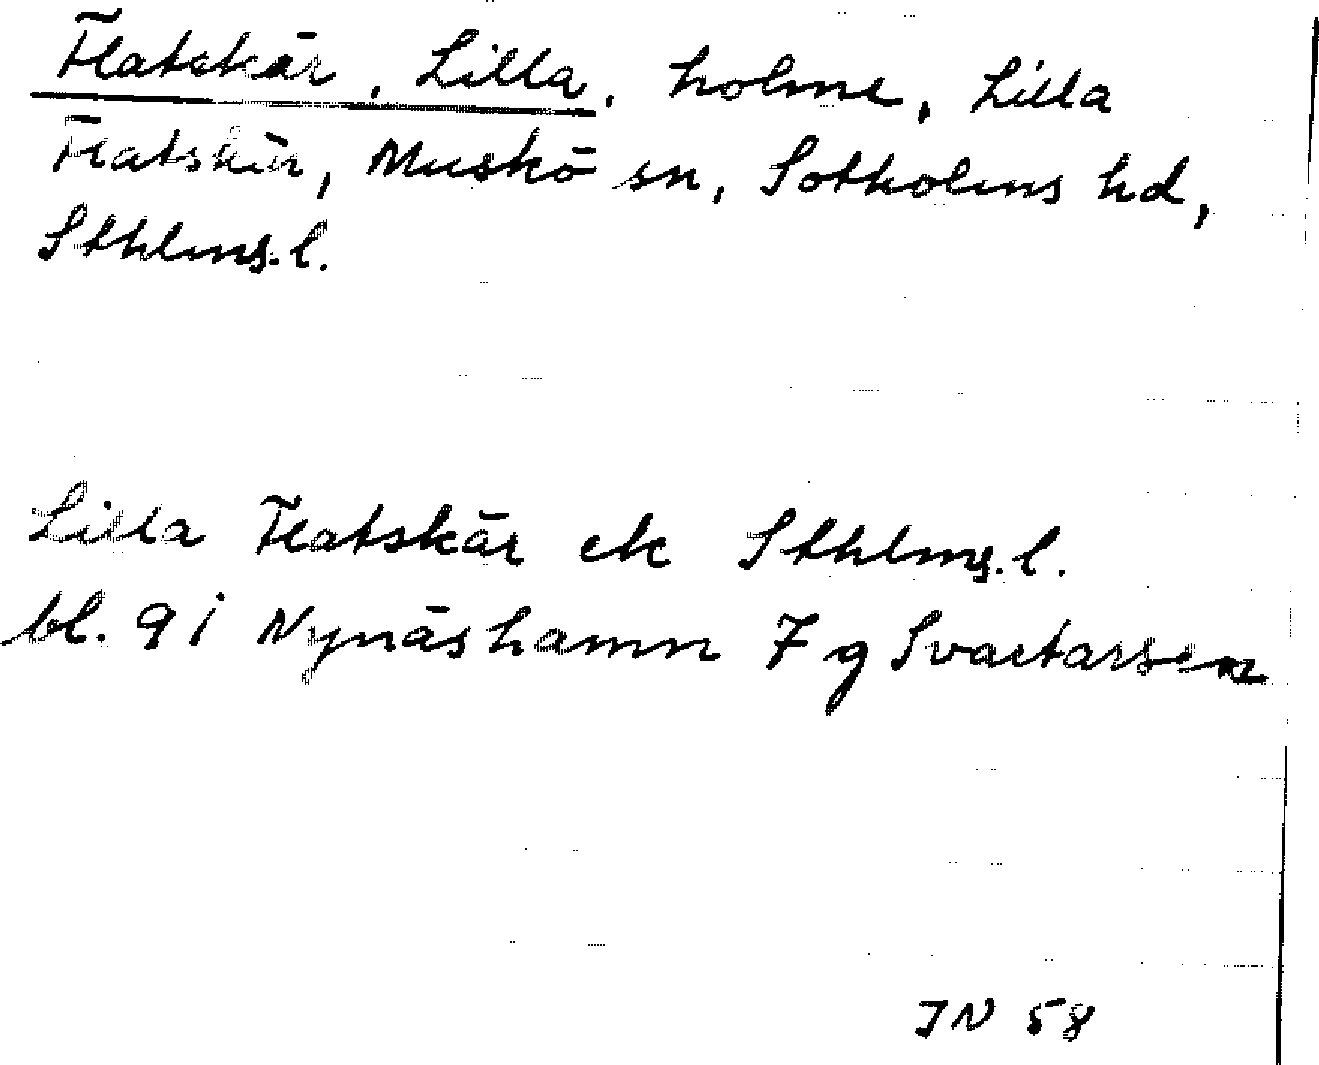 Flatskär, Lilla, holme, Lilla
Flatskär, Muskö sn, Sotholms hd,
Sthlms. l.
Lilla Flatskär ek Sthlms. l.
bl. 9 i Nynäshamn 7 g Svartarsen
JN 58